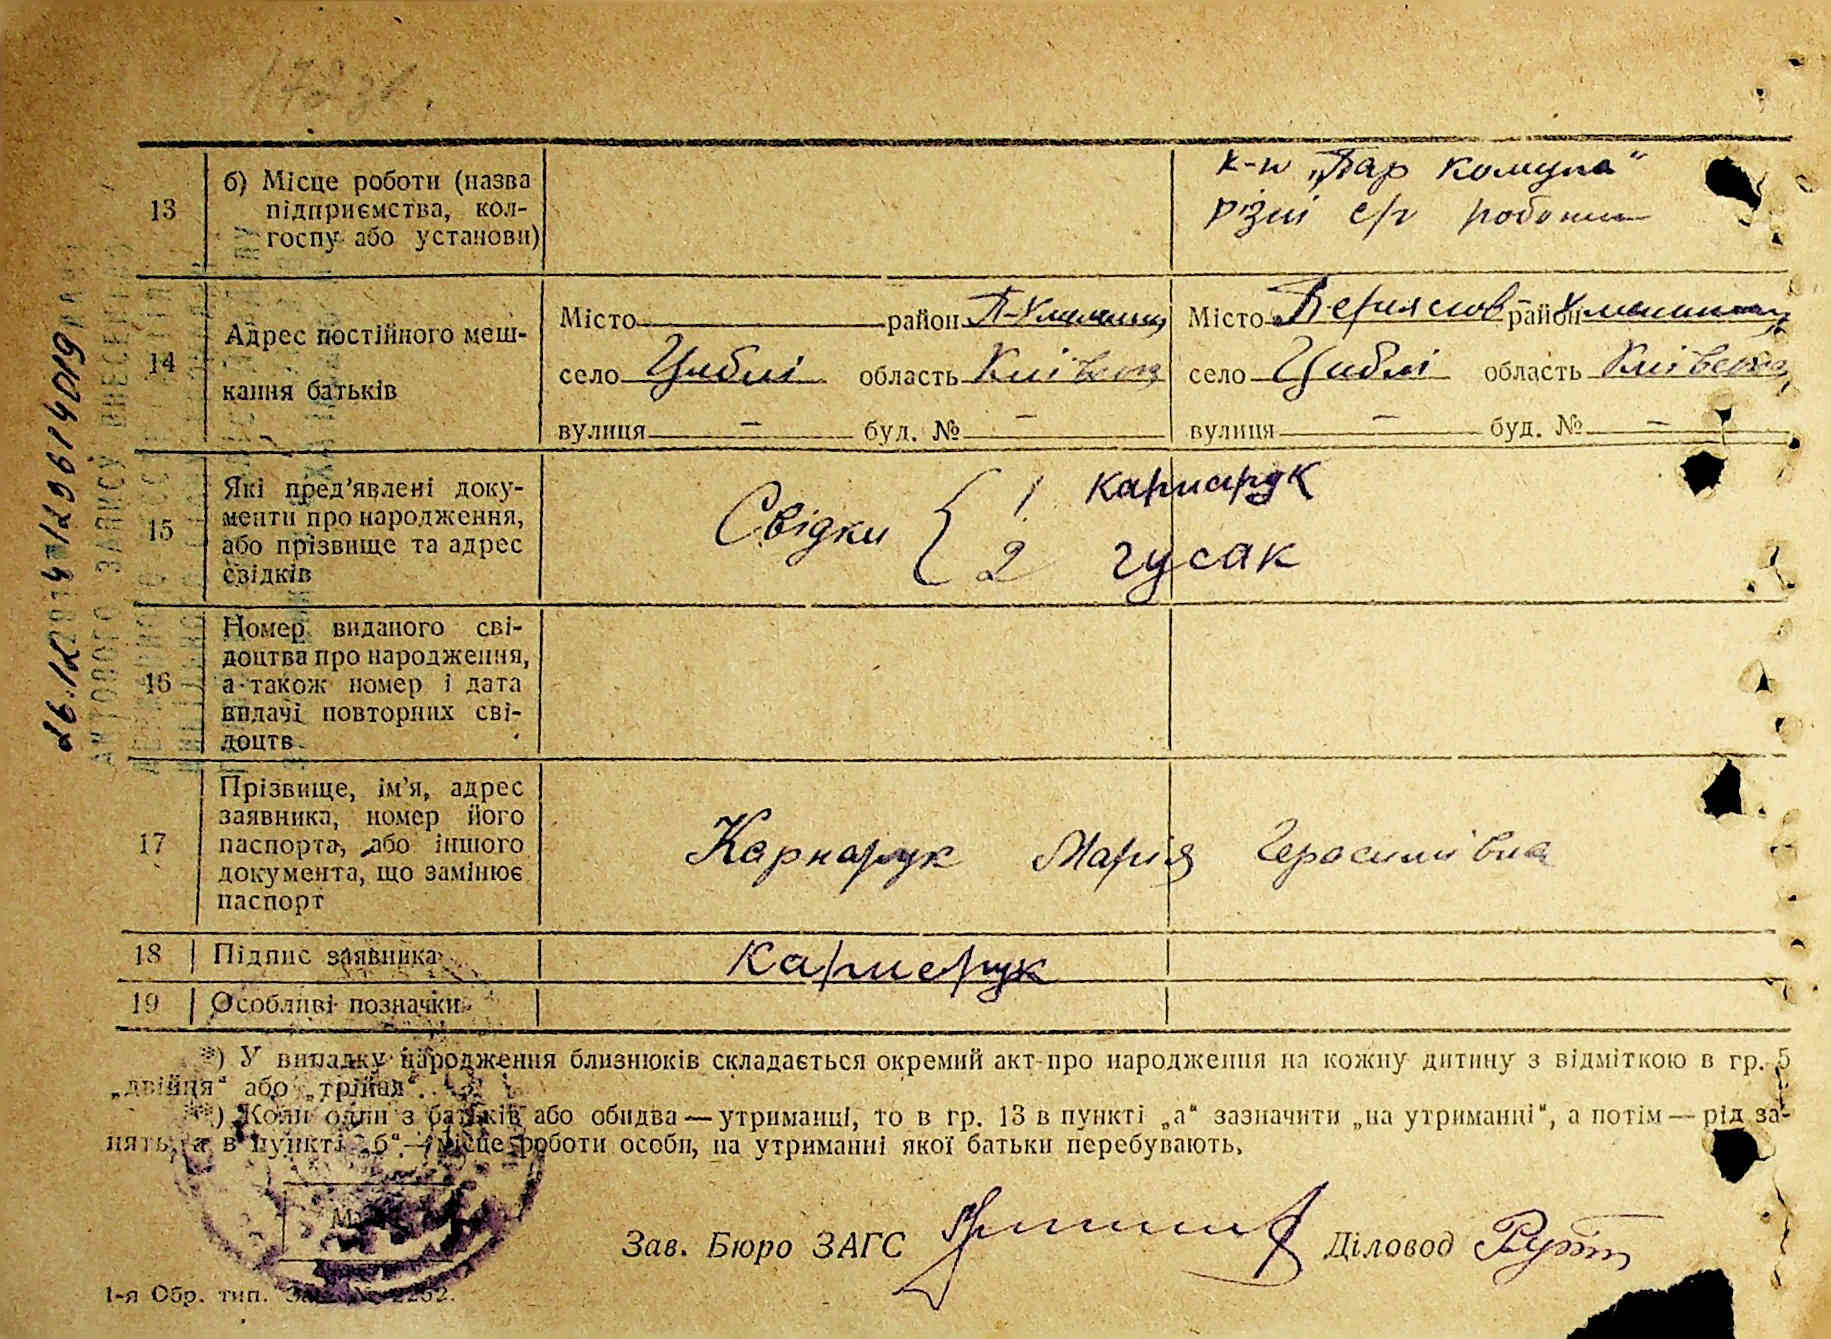 13
б) Місце роботи (назва
підприємства, кол-
госпу або установи)
к-п „Пар Комуна“
різні с/г роботи
14
Адрес постійного меш-
кання батьків
Місто — район П-Хмельниц
село Циблі область Київська
вулиця — буд. №
Місто Переяслов- район Хмельниц
село Циблі область Київська
вулиця — буд. № —
15
Які пред’явлені доку-
менти про народження,
або прізвище та адрес
свідків
Свідки { 1. Карнарук
2 Гусак
16
Номер виданого сві-
доцтва про народження,
а також номер і дата
видачі повторних сві-
доцтв
17
Прізвище, ім’я, адрес
заявника, номер його
паспорта, або іншого
документа, що замінює
паспорт
Карнарук Марія Герасимівна
18
Підпис заявника
Карнарук
19
Особливі позначки
*) У випадку народження близнюків складається окремий акт про народження на кожну дитину з відміткою в гр. 5
„двійня“ або „трійня“.
**) Коли один з батьків або обидва — утриманці, то в гр. 13 в пункті „а“ зазначити „на утриманні“, а потім — рід за-
нять, а в пункті „б“ — місце роботи особи, на утриманні якої батьки перебувають.
Зав. Бюро ЗАГС
Діловод
1-я Обр. тип. Зак. № 2252.
АКТОВОГО ЗАПИСУ ВНЕСЕНО